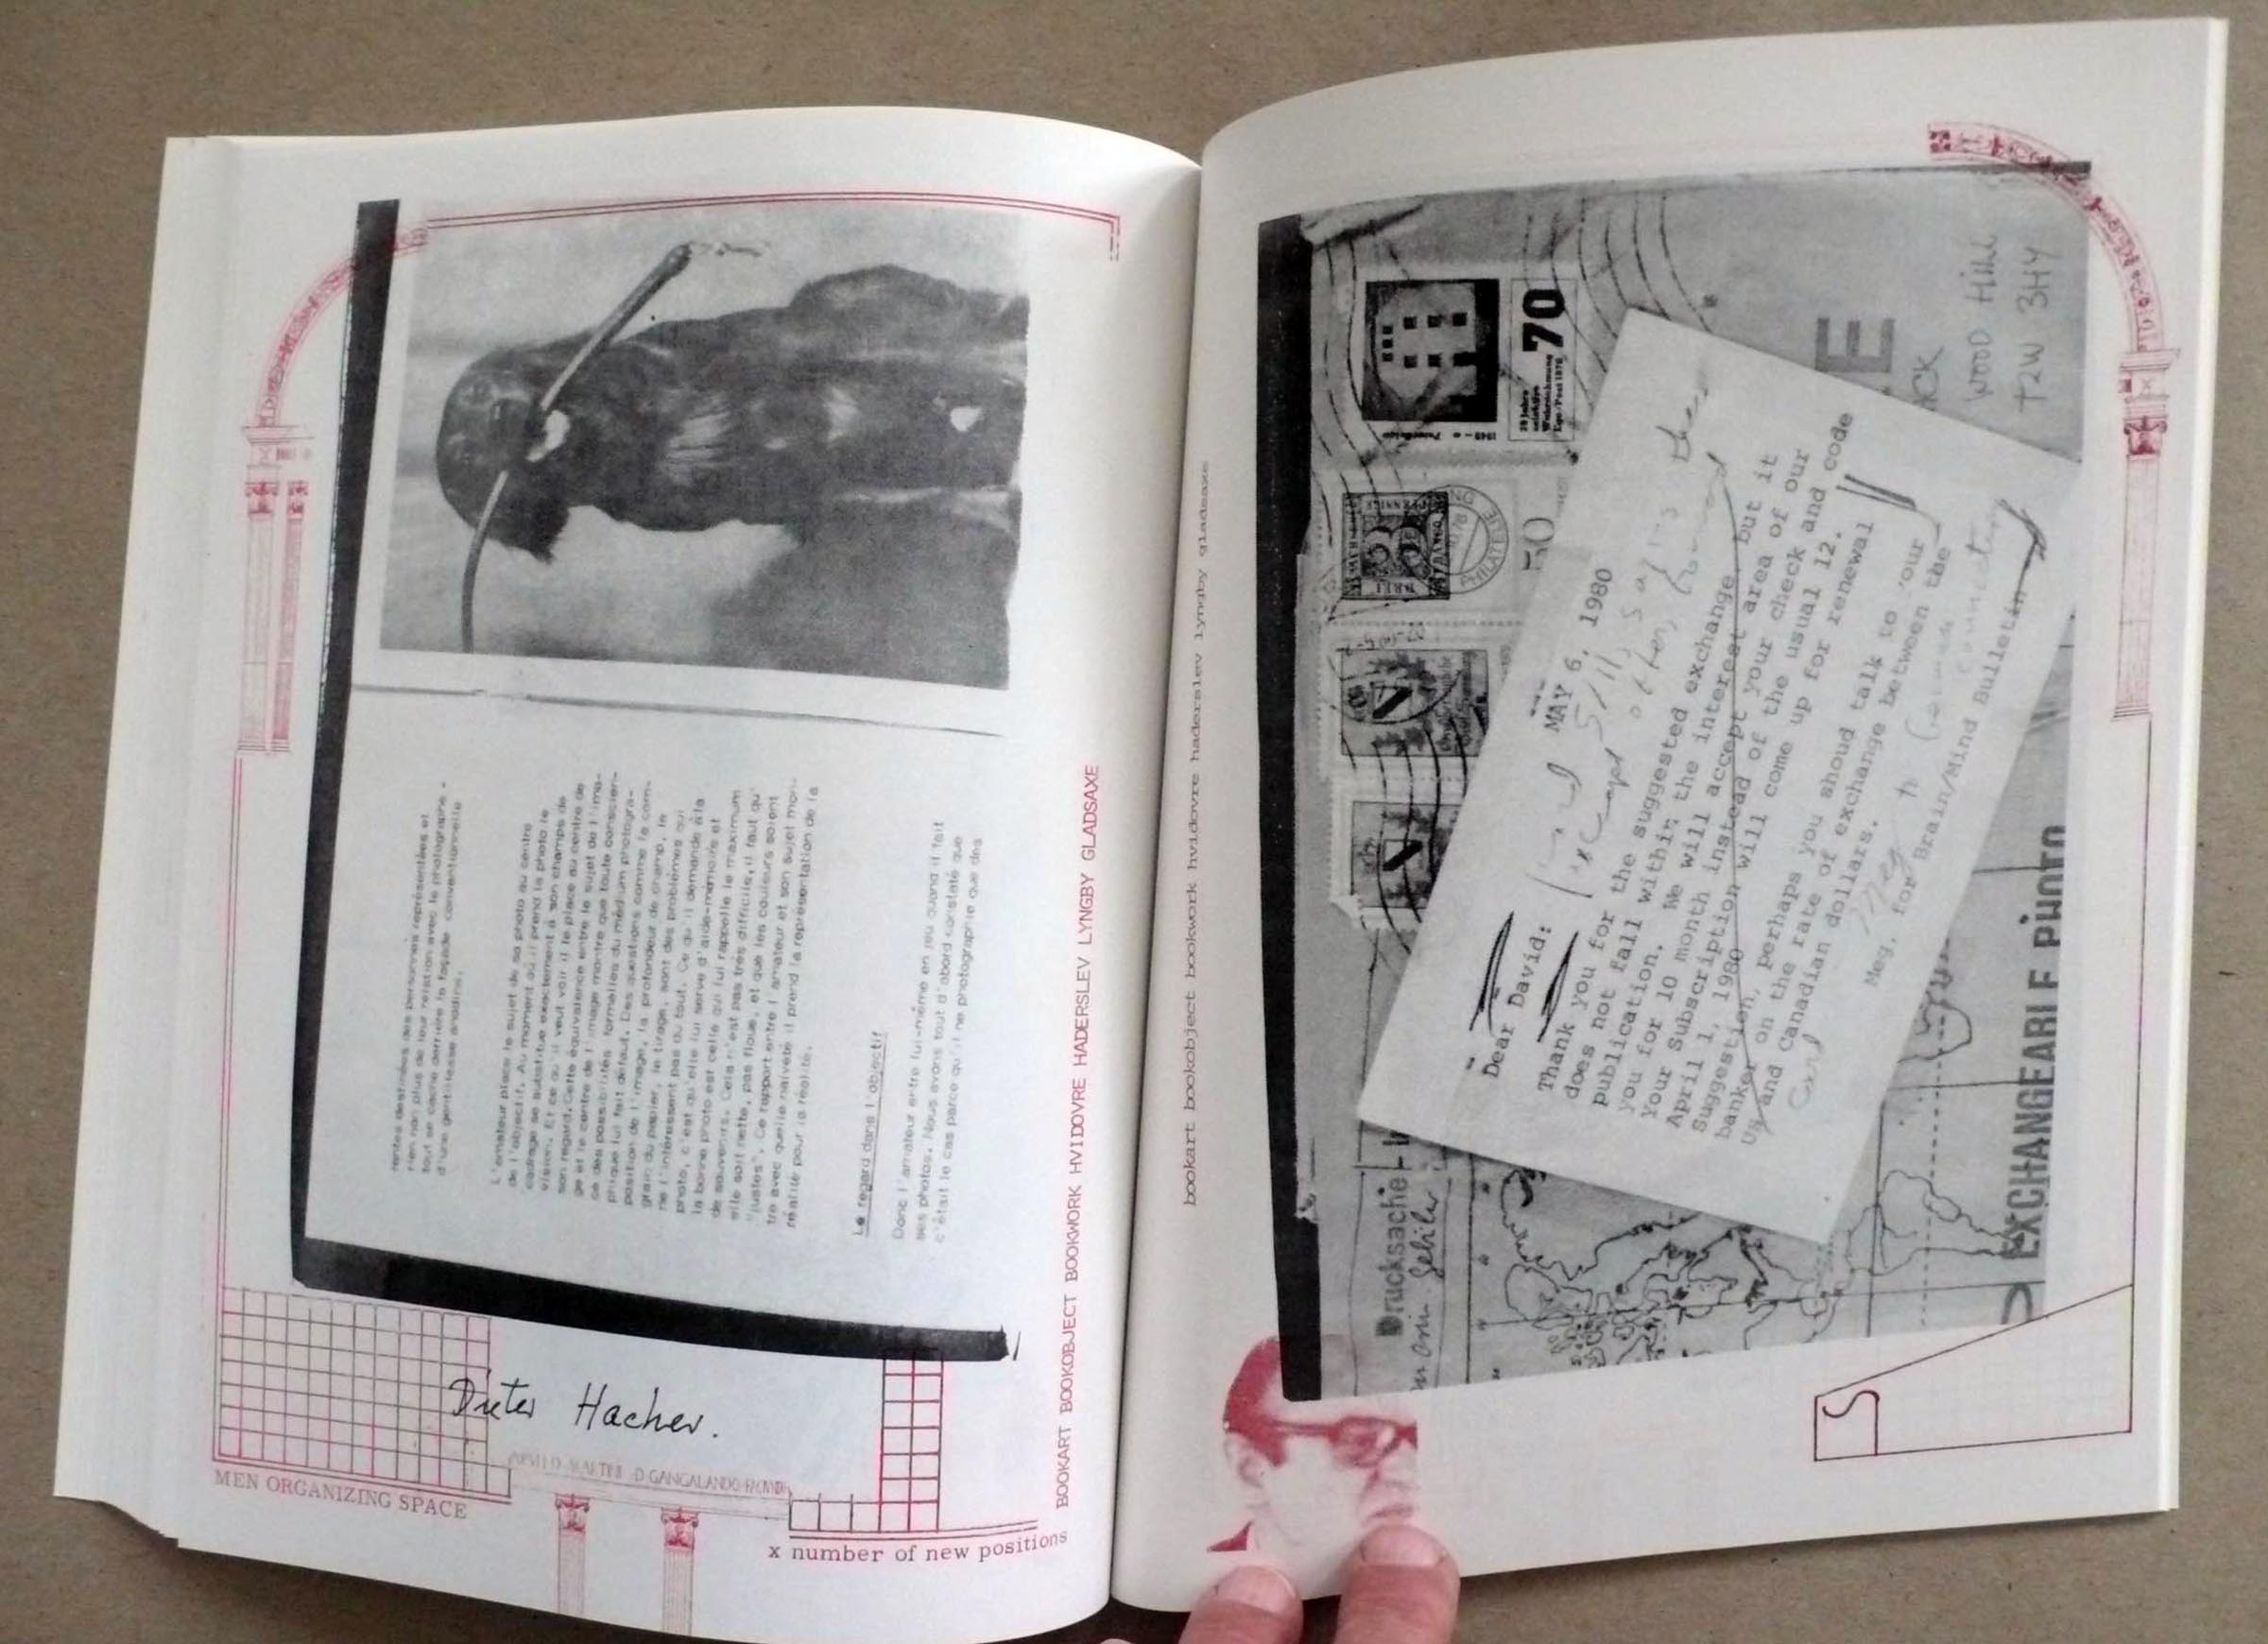 rentes destinées des personnes représentées et
rien non plus de leur relation avec le photographe -
tout se cache derrière la façade conventionnelle
d'une gentillesse anodine.
L'amateur place le sujet de sa photo au centre
de l'objectif. Au moment où il prend la photo le
cadrage se substitue exactement à son champs de
vision. Et ce qu'il veut voir il le place au centre de
son regard. Cette équivalence entre le sujet de l'ima-
ge et le centre de l'image montre que toute conscien-
ce des possibilités formelles du médium photogra-
phique lui fait défaut. Des questions comme la com-
position de l'image, la profondeur de champ, le
grain du papier, le tirage, sont des problèmes qui
ne l'intéressent pas du tout. Ce qu'il demande à la
photo, c'est qu'elle lui serve d'aide-mémoire et
la bonne photo est celle qui lui rappelle le maximum
de souvenirs. Cela n'est pas très difficile, il faut qu'
elle soit nette, pas floue, et que les couleurs soient
"justes". Ce rapport entre l'amateur et son sujet mon-
tre avec quelle naiveté il prend la représentation de la
réalité pour la réalité.
Le regard dans l'objectif
Donc l'amateur entre lui-même en jeu quand il fait
ses photos. Nous avons tout d'abord constaté que
c'était le cas parce qu'il ne photographie que des
Dieter Hacher.
MEN ORGANIZING SPACE
x number of new positions
BOOKART BOOKOBJECT BOOKWORK HVIDOVRE HADERSLEV LYNGBY GLADSAXE
bookart bookobject bookwork hvidovre haderslev lyngby gladsaxe
70
50
PHILATELIE
E
WOOD HILL
T2W 3H4
MAY 6, 1980
Dear David:
Thank you for the suggested exchange but it
does not fall within the interest area of our
publication. We will accept your check and code
you for 10 month instead of the usual 12.
Your Subscription will come up for renewal
April 1, 1980
Suggestion, perhaps you shoud talk to your
banker on the rate of exchange between the
US and Canadian dollars.
Meg. for Brain/Mind Bulletin
Drucksache
EXCHANGEABLE PHOTO
S